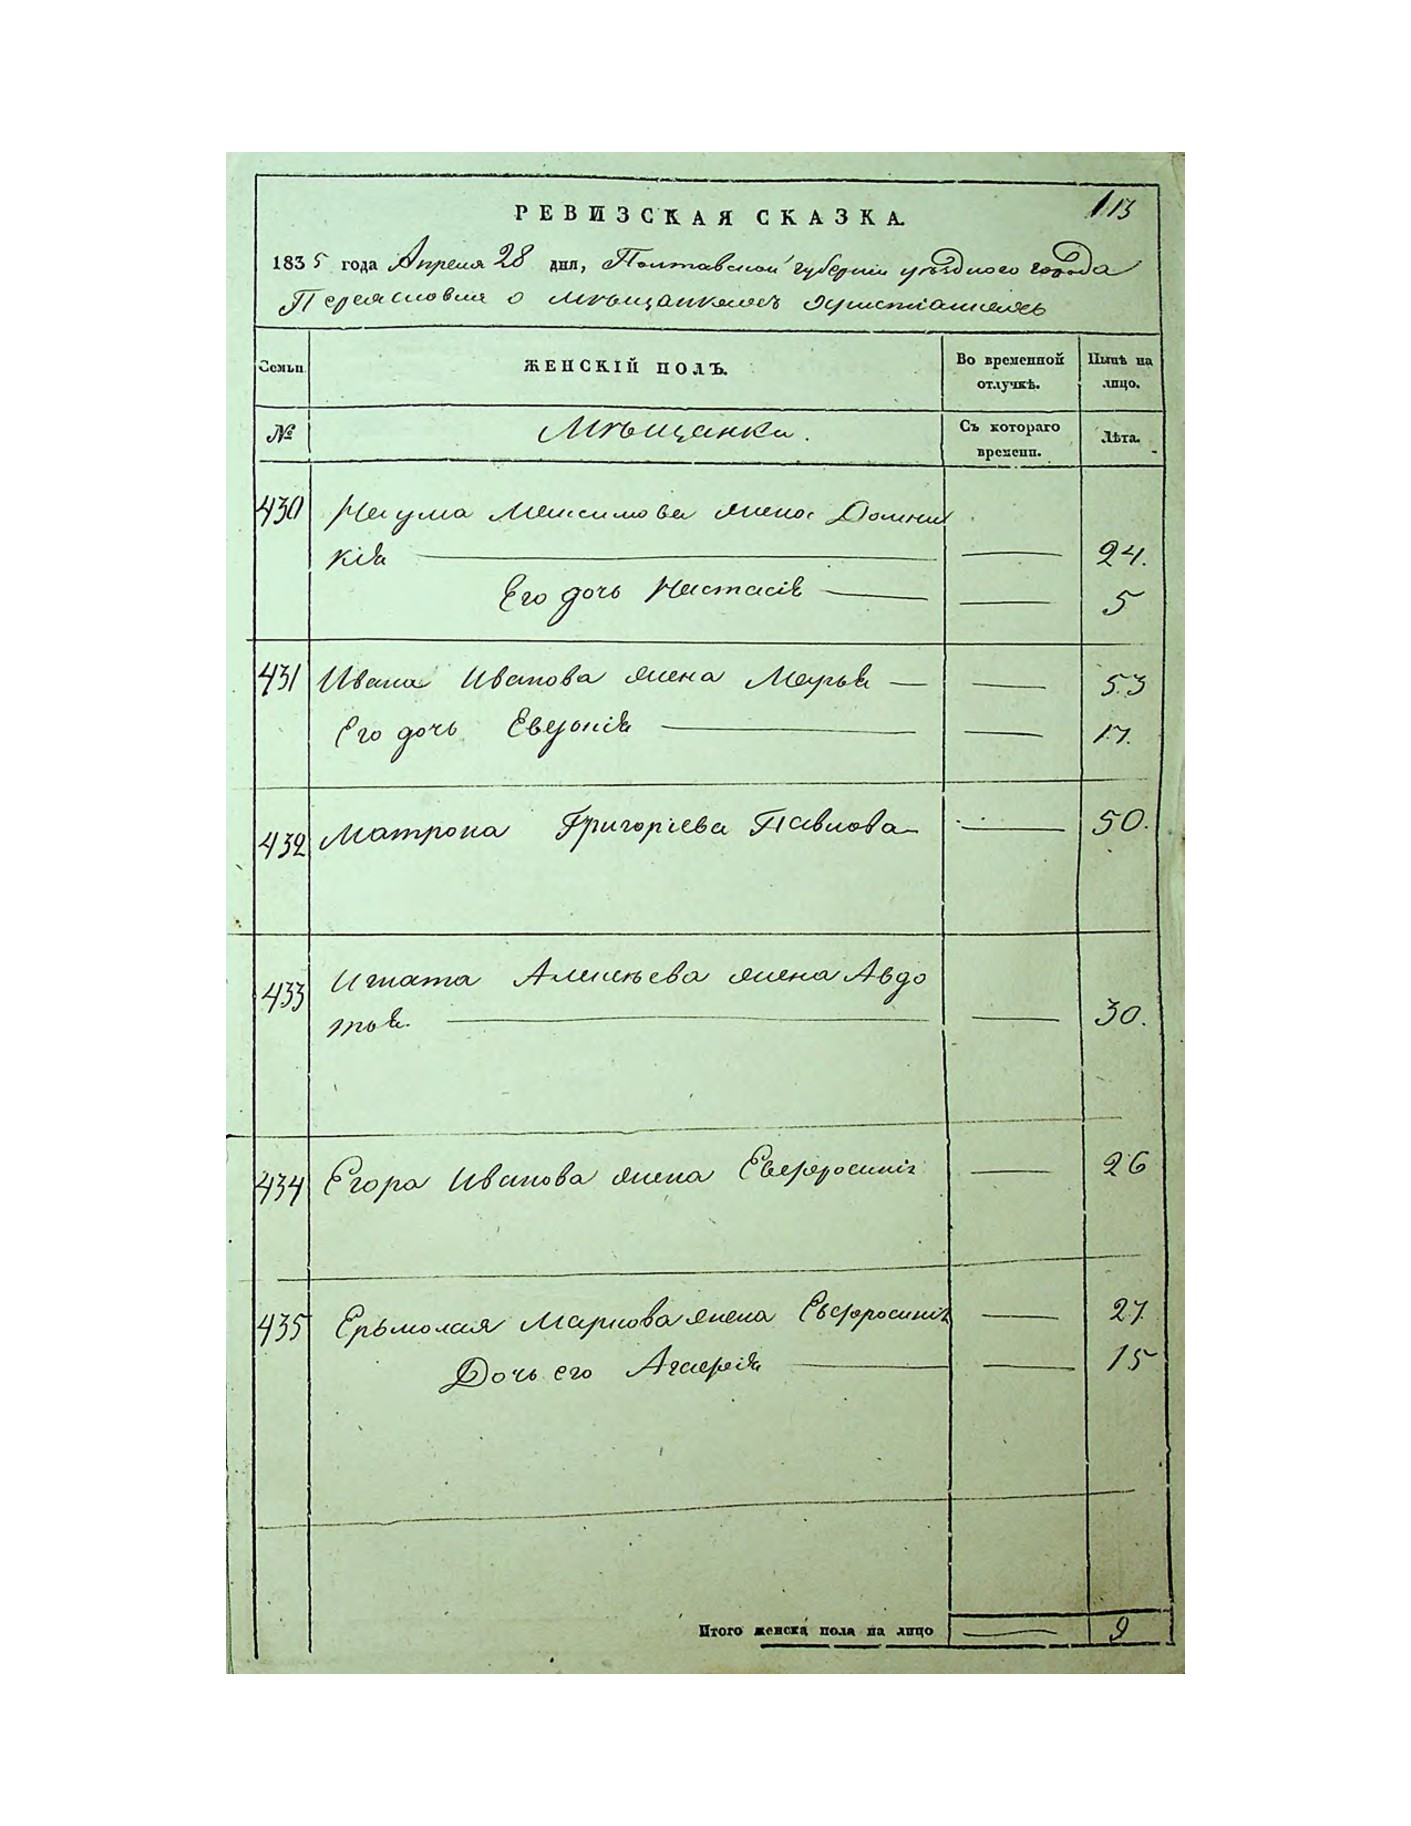 113
РЕВИЗСКАЯ СКАЗКА.
1835 года Апреля 28 дня, Полтавской губерніи уѣзднаго города
Переяславля о мѣщанкахъ христіанахъ
Семьи. ЖЕНСКІЙ ПОЛЪ. Во временной отлучкѣ. Нынѣ на лицо.
№ Мѣщанки. Съ котораго времени. Лѣта.
430 Наума Максимова жена Домни
кія 24.
Его дочь Настасія 5
431 Ивана Иванова жена Марья 53
Его дочь Евфонія 17.
432 Матрона Григоріева Павлова 50.
433 Игната Алексѣева жена Авдо
тья. 30.
434 Егора Иванова жена Евфросинія 26
435 Ерьмолая Маркова жена Евфросинія 27
Дочь его Агафія 15
Итого женска пола на лицо 9